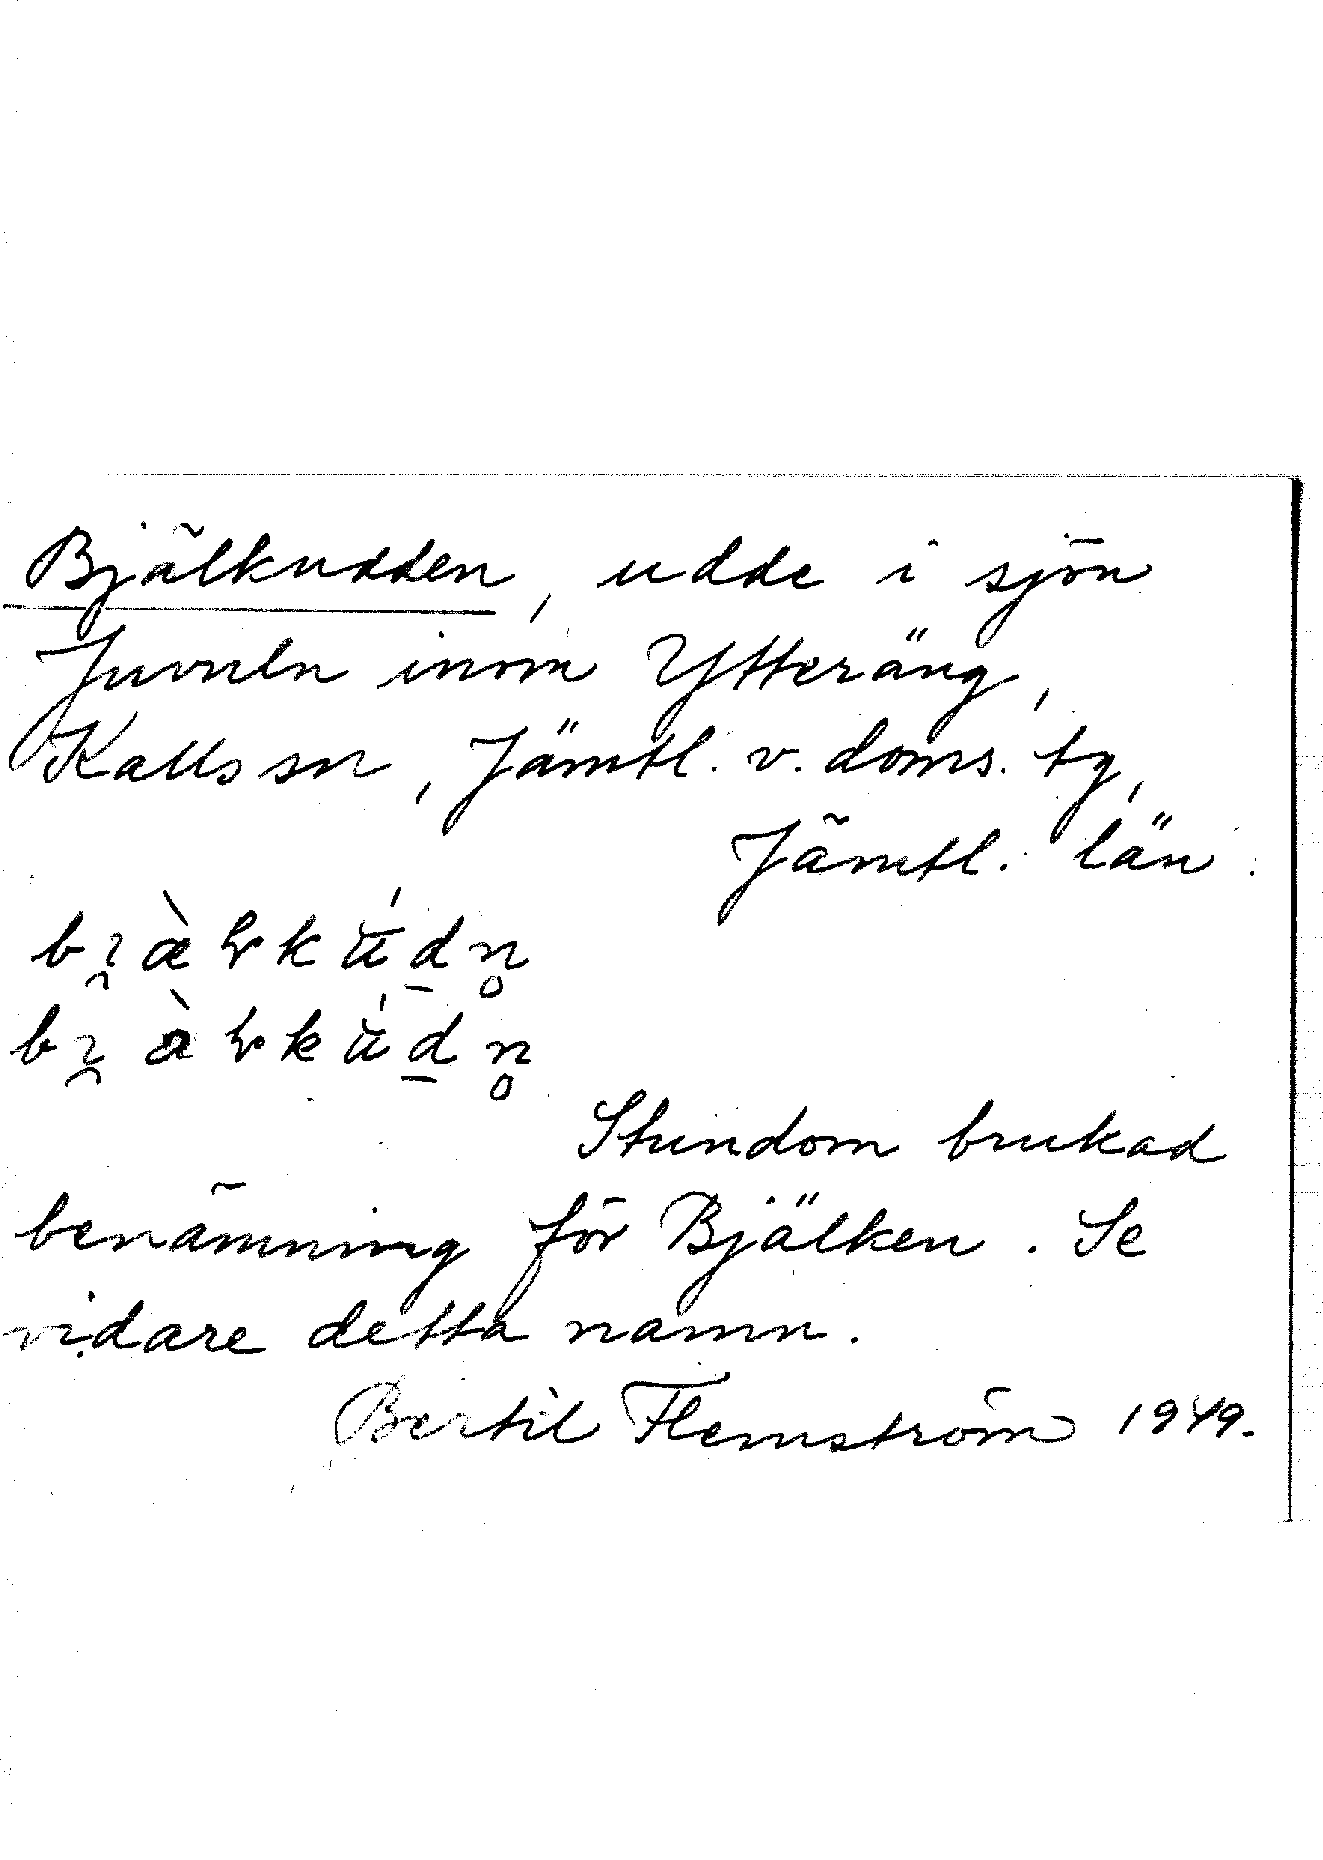 Bjälkudden, udde i sjön
Juvuln inom Ytteräng,
Kalls sn, Jämtl. v. doms. tg,
Jämtl. län.
Stundom brukad
benämning för Bjälken. Se
vidare detta namn.
Bertil Flemström 1949.